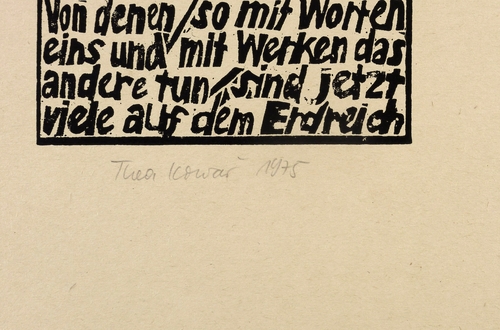 Von denen / so mit Worten
eins und / mit Werken das
andere tun / sind jetzt
viele auf dem Erdreich
Thea Kowař 1975